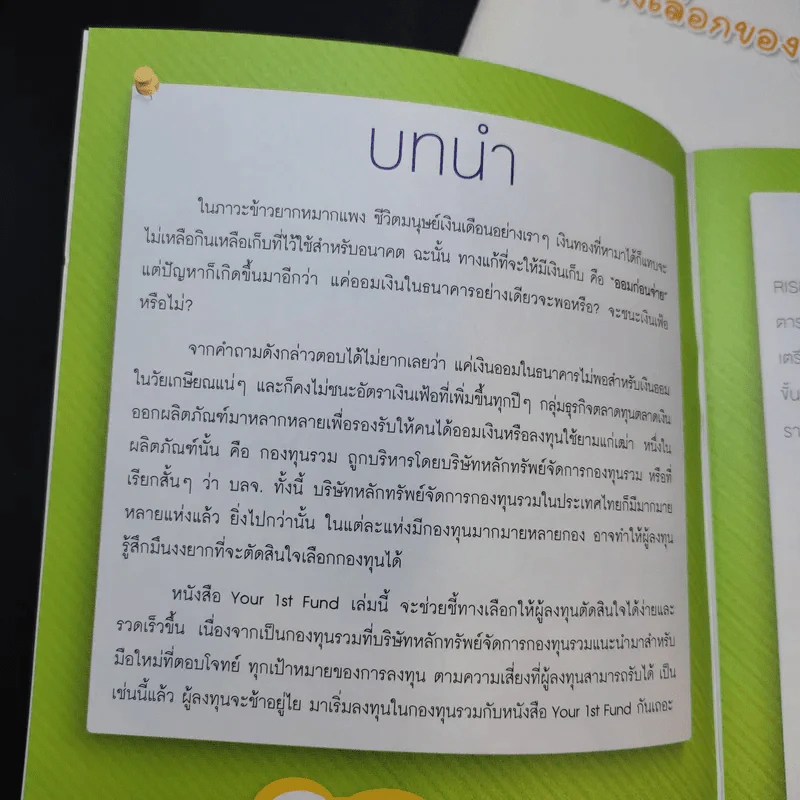 ทางเลือกของ
บทนำ
ในภาวะข้าวยากหมากแพง ชีวิตมนุษย์เงินเดือนอย่างเราๆ เงินทองที่หามาได้ก็แทบจะ
ไม่เหลือกินเหลือเก็บที่ไว้ใช้สำหรับอนาคต ฉะนั้น ทางแก้ที่จะให้มีเงินเก็บ คือ "ออมก่อนจ่าย"
แต่ปัญหาก็เกิดขึ้นมาอีกว่า แค่ออมเงินในธนาคารอย่างเดียวจะพอหรือ? จะชนะเงินเฟ้อ
หรือไม่?
จากคำถามดังกล่าวตอบได้ไม่ยากเลยว่า แค่เงินออมในธนาคารไม่พอสำหรับเงินออม
ในวัยเกษียณแน่ๆ และก็คงไม่ชนะอัตราเงินเฟ้อที่เพิ่มขึ้นทุกปีๆ กลุ่มธุรกิจตลาดทุนตลาดเงิน
ออกผลิตภัณฑ์มาหลากหลายเพื่อรองรับให้คนได้ออมเงินหรือลงทุนใช้ยามแก่เฒ่า หนึ่งใน
ผลิตภัณฑ์นั้น คือ กองทุนรวม ถูกบริหารโดยบริษัทหลักทรัพย์จัดการกองทุนรวม หรือที่
เรียกสั้นๆ ว่า บลจ. ทั้งนี้ บริษัทหลักทรัพย์จัดการกองทุนรวมในประเทศไทยก็มีมากมาย
หลายแห่งแล้ว ยิ่งไปกว่านั้น ในแต่ละแห่งมีกองทุนมากมายหลายกอง อาจทำให้ผู้ลงทุน
รู้สึกมึนงงยากที่จะตัดสินใจเลือกกองทุนได้
หนังสือ Your 1st Fund เล่มนี้ จะช่วยชี้ทางเลือกให้ผู้ลงทุนตัดสินใจได้ง่ายและ
รวดเร็วขึ้น เนื่องจากเป็นกองทุนรวมที่บริษัทหลักทรัพย์จัดการกองทุนรวมแนะนำมาสำหรับ
มือใหม่ที่ตอบโจทย์ ทุกเป้าหมายของการลงทุน ตามความเสี่ยงที่ผู้ลงทุนสามารถรับได้ เป็น
เช่นนี้แล้ว ผู้ลงทุนจะช้าอยู่ไย มาเริ่มลงทุนในกองทุนรวมกับหนังสือ Your 1st Fund กันเถอะ